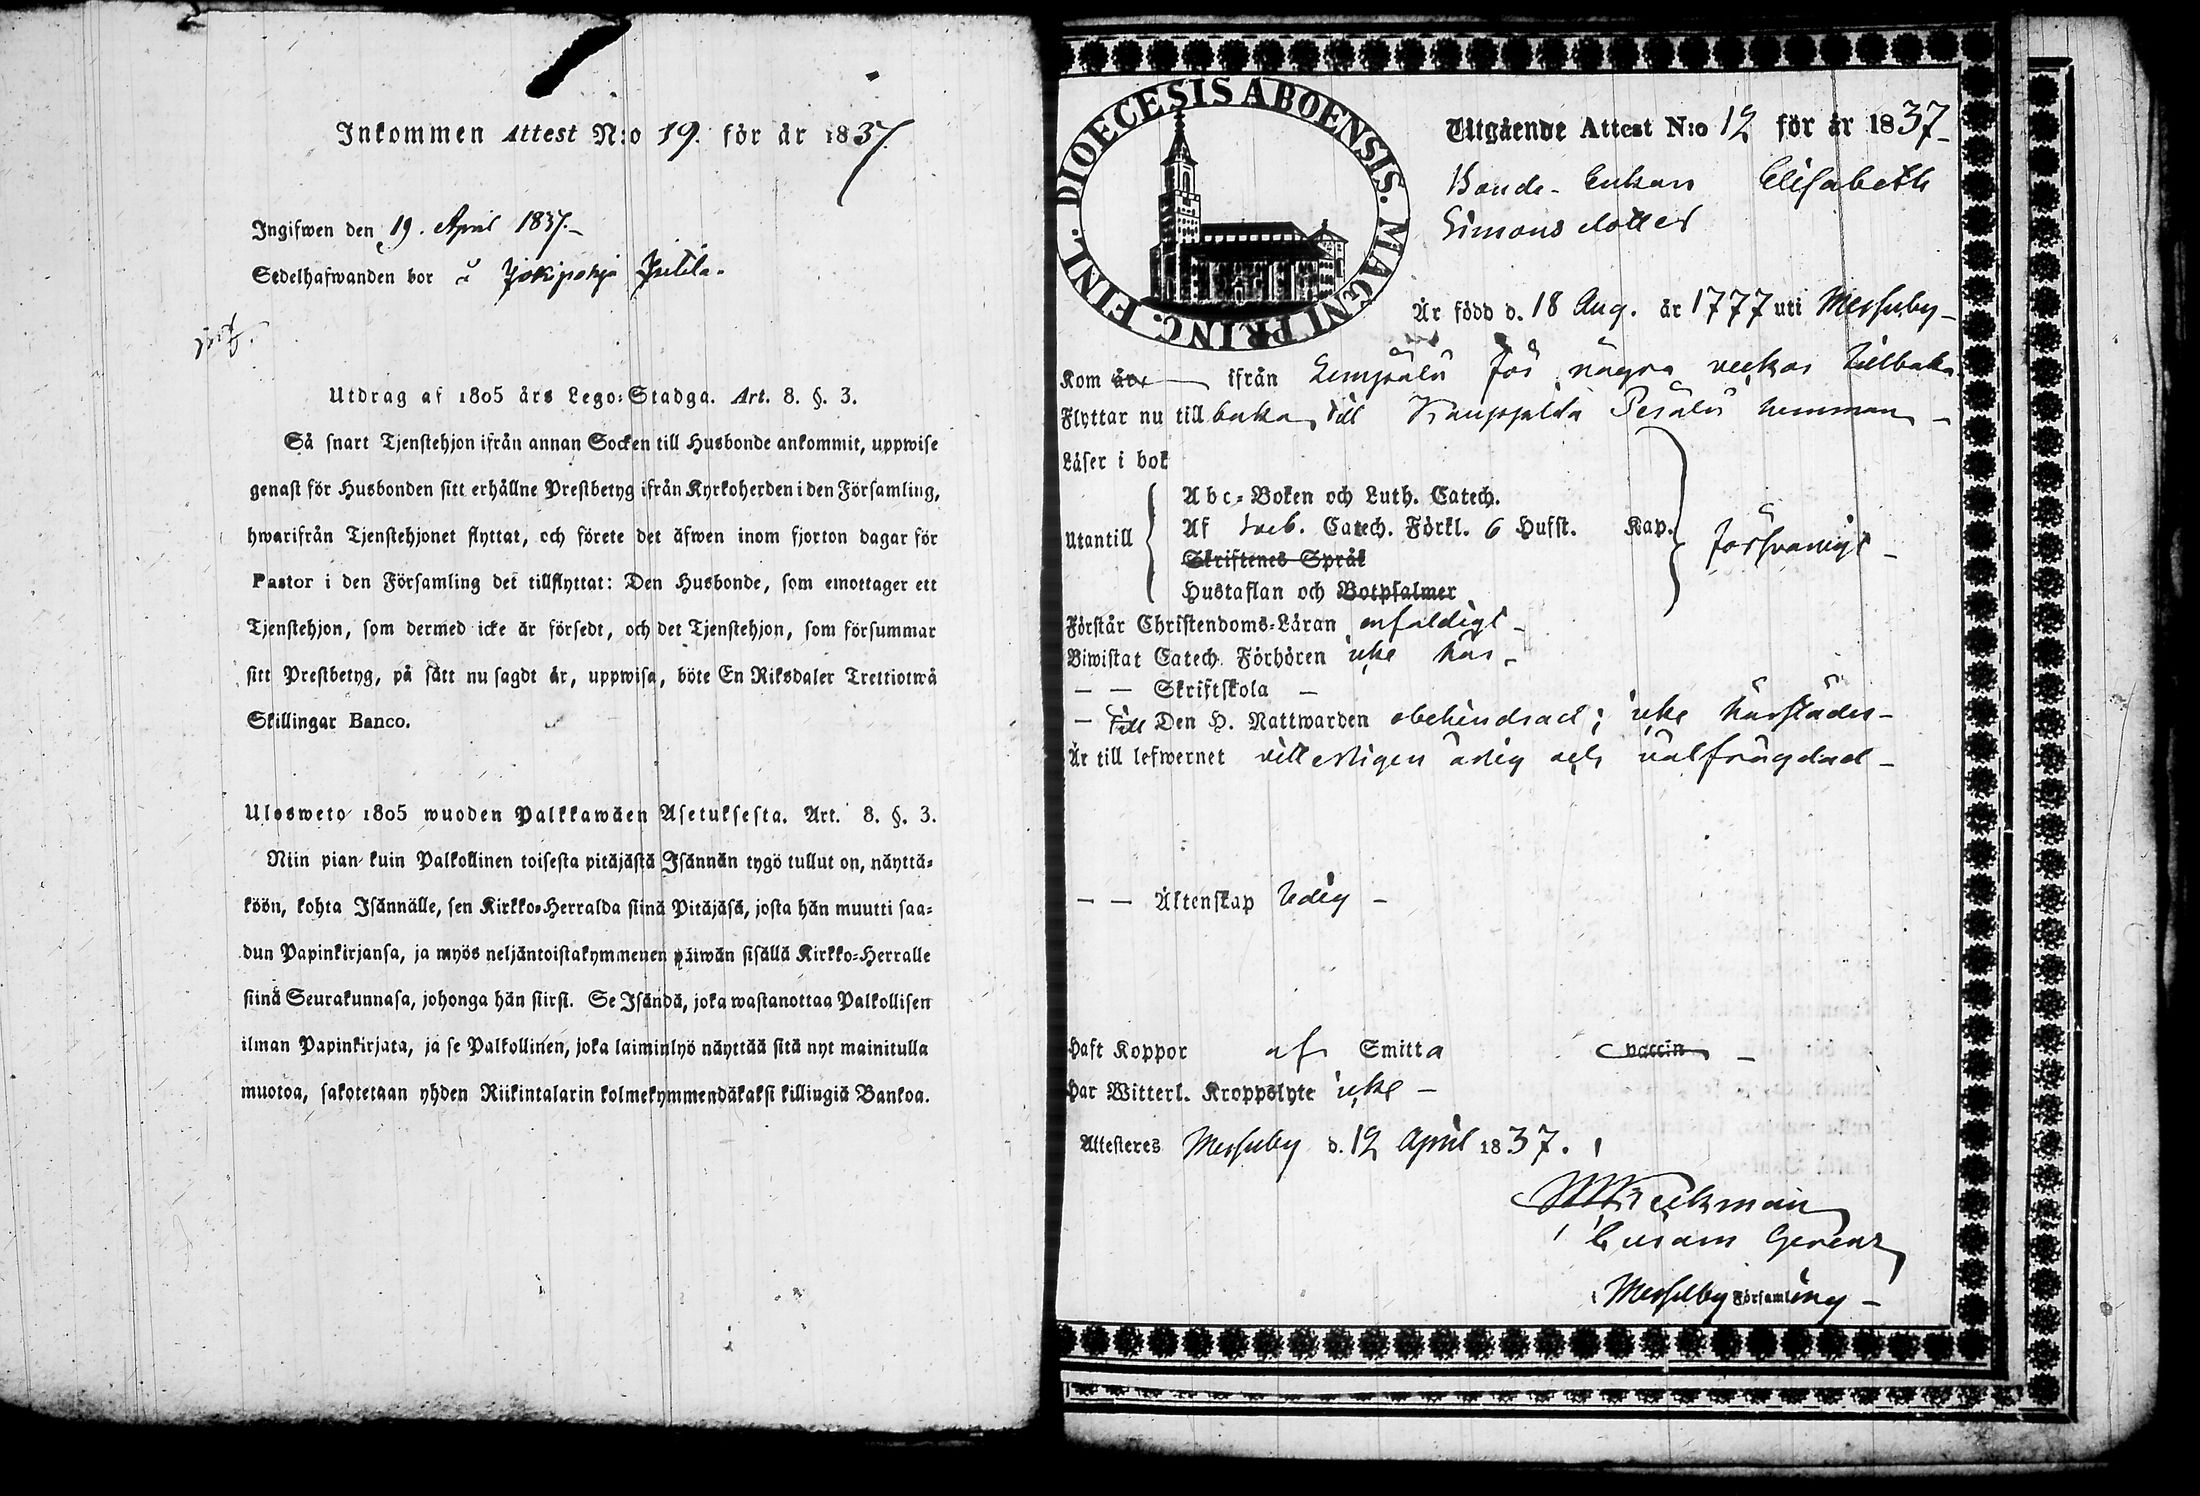 Inkommen Attest N:o 19. för år 1837.
Ingifwen den 19. April 1837.-
Sedelhafwanden bor å Jokipohja
Utdrag af 1805 års Lego-Stadga. Art. 8. §. 3.
Så snart Tjenstehjon ifrån annan Socken till Husbonde ankommit, uppwise
genast för Husbonden sitt erhållne Prestbetyg ifrån Kyrkoherden i den Församling,
hwarifrån Tjenstehjonet flyttat, och förete det äfwen inom fjorton dagar för
Pastor i den Församling det tillflyttat: Den Husbonde, som emottager ett
Tjenstehjon, som dermed icke är försedt, och det Tjenstehjon, som försummar
sitt Prestbetyg, på sätt nu sagdt är, uppwisa, böte En Riksdaler Trettiotwå
Skillingar Banco.
Ulosweto 1805 wuoden Palkkawäen Asetuksesta. Art. 8. §. 3.
Niin pian kuin Palkollinen toisesta pitäjästä Isännän tygö tullut on, näyttä-
köön, kohta Isännälle, sen Kirkko-Herralda siinä Pitäjäsä, josta hän muutti saa-
dun Papinkirjansa, ja myös neljäntoistakymmenen päiwän sisällä Kirkko-Herralle
siinä Seurakunnasa, johonga hän siirst. Se Isändä, joka wastanottaa Palkollisen
ilman Papinkirjata, ja se Palkollinen, joka laiminlyö näyttää sitä nyt mainitulla
muotoa, sakotetaan yhden Riikintalarin kolmekymmendäkaksi killingiä Bankoa.
DIOECESIS ABOENSIS. MAGNI PRINC. FINL.
Utgående Attest N:o 12 för år 1837-
Bonde-Enkan Elisabeth
Simonsdotter
Är född d. 18 Aug. år 1777 uti Messuby-
Kom år ifrån Lempälä för några veckor tillbaka.
Flyttar nu tillbaka till Perälä hemman-
Läser i bok
Utantill
Abc-Boken och Luth. Catech.
Af Catech. Förkl. 6 Hufst. Kap.
Skriftenes Språk
Hustaflan och Botpsalmer
försvarligt-
Förstår Christendoms-Läran enfaldigt-
Biwistat Catech. Förhören icke här-
— — Skriftskola —
— till Den H. Nattwarden obehindrad; icke härstädes-
Är till lefwernet vitterligen ärlig och välfrägdad-
— — Äktenskap ledig-
Haft Koppor af Smitta vaccin -
Har Witterl. Kroppslyte icke-
Attesteres Messuby d. 12 April 1837.
Curam Gerens
i Messuby Församling-